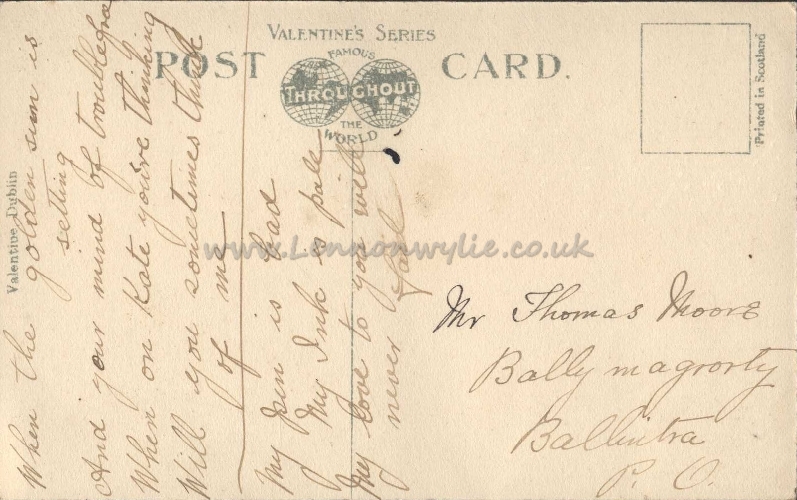 VALENTINE'S SERIES
POST CARD.
FAMOUS
THROUGHOUT
THE
WORLD
Printed in Scotland
Valentine, Dublin
When the golden sun is
setting
And your mind of trouble free
When on Kate you're thinking
Will you sometimes think
of me
My pen is bad
My Ink is pale
My love to you will
never fail
www.Lennonwylie.co.uk
Mr Thomas Moore
Ballymagrorty
Ballintra
P. O.